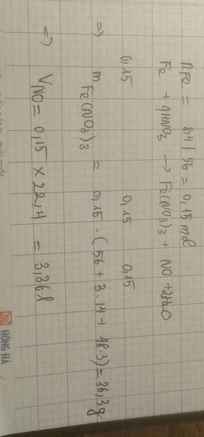 nFe = 8,4/56 = 0,15 mol
Fe + 4HNO3 → Fe(NO3)3 + NO + 2H2O
0,15 0,15 0,15
=> m Fe(NO3)3 = 0,15 . (56 + 3.14 + 48.3) = 36,3g
=> VNO = 0,15 x 22,4 = 3,36l
HỒNG HÀ